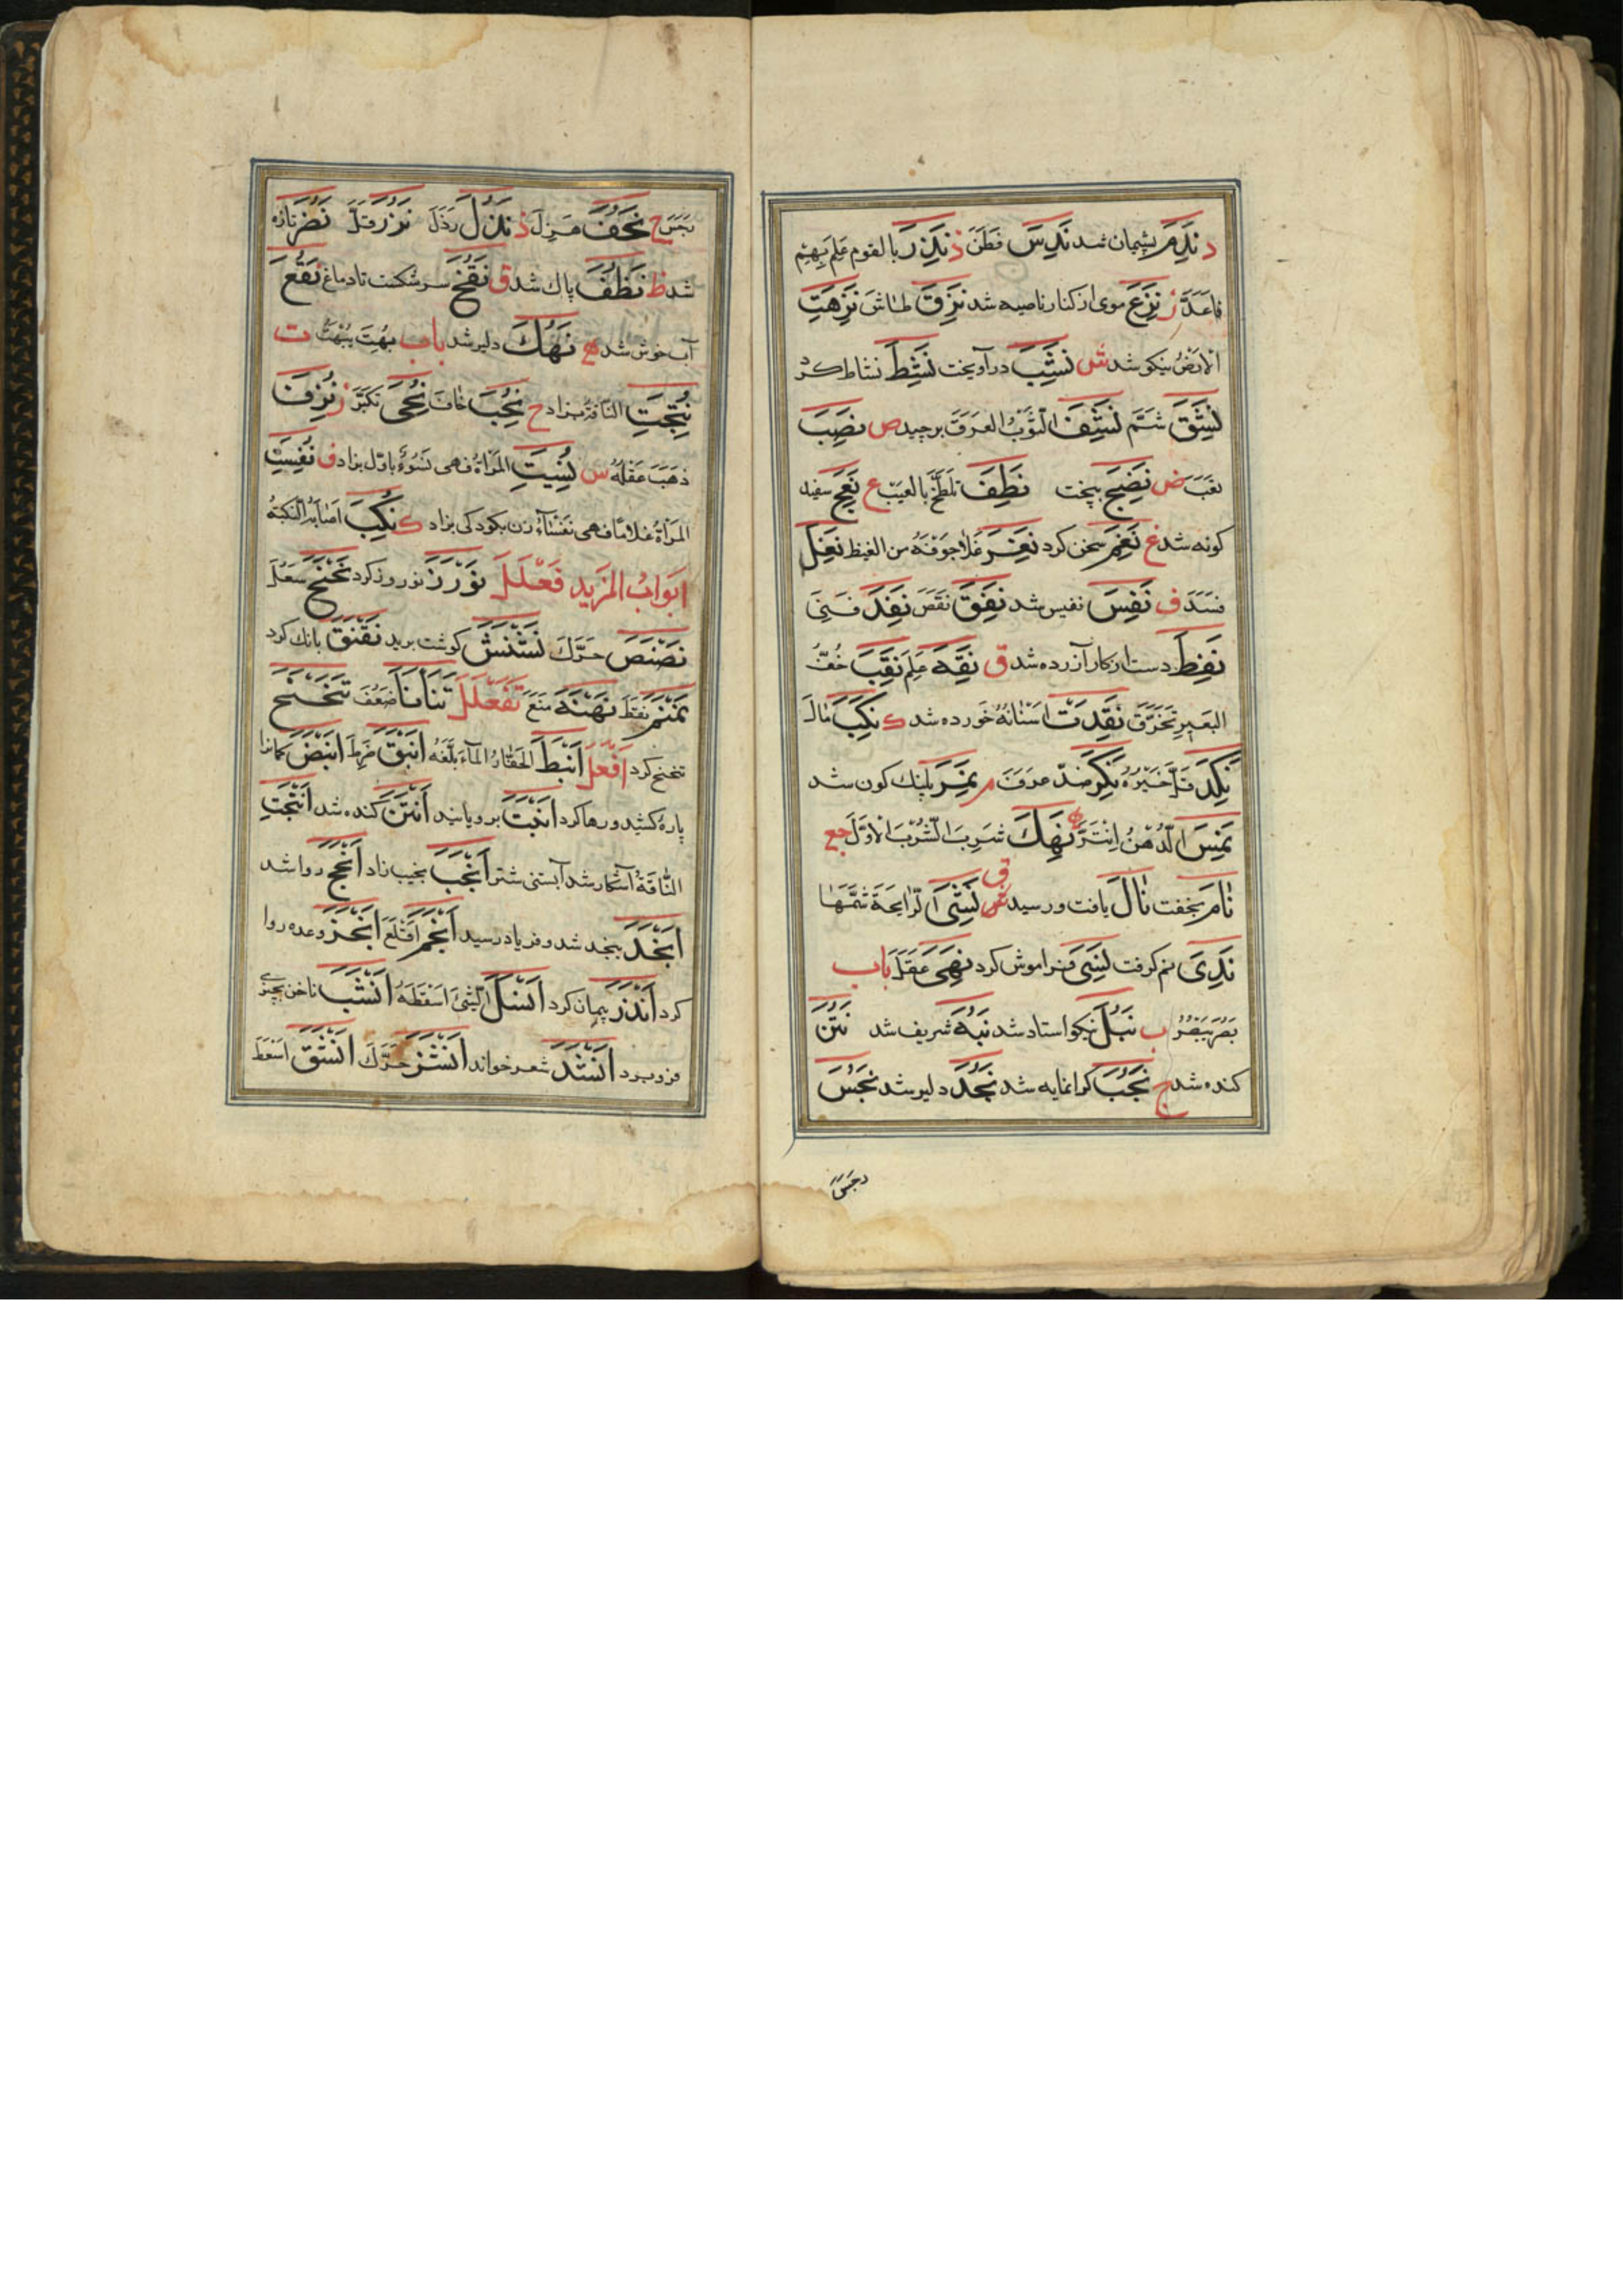 د نَدِمَ پشیمان شد نَدِسَ فَطَنَ ذ نَذِرَ بالقوم عَلِمَ بِهِم
فاعَدَّ ز نَزِعَ موی از کنار ناصیه شد نَزِقَ طاشَ نَزِهَتِ
الارضُ نیکو شد ش نَشِبَ درآویخت نَشِطَ نشاط کرد
نَشِقَ شَمَّ نَشِفَ الثَّوبُ العَرَقَ برچید ص نَصِبَ
تعَبَ ض نَضِجَ پخت نَطِفَ تلطَّخَ بالعیب ع نَعِجَ سفید
کونه شد غ نَغِمَ سخن کرد نَغِرَ غَلا جوفُهُ من الغیظ نَغِلَ
فسَدَ ف نَفِسَ نفیس شد نَفِقَ نقَصَ نَفِدَ فَنِیَ
نَفِطَ دست از کار آزرده شد ق نَقِهَ عَلِمَ نَقِبَ خُفُّ
البَعیرِ تَخَرَّقَ نَقِدَت اسنانُهُ خورده شد ک نَکِبَ مالَ
نَکِدَ قَلَّ خَیرُهُ نَکِرَ ضدّ عرَفَ م نَمِرَ پلنک کون شد
نَمِسَ الدُّهنُ ه نَهِکَ شَرِبَ الشُّربَ الاوّلَ جع
نامَ بخفت نالَ یافت و رسید نَشِیَ الرّایحةَ شَمَّها
نَدِیَ نم کرفت نَسِیَ فراموش کرد نَهِیَ عَقَلَ باب
بَصُرَ یَبصُرُ ب نَبُلَ نیکو استاد شد نَبُهَ شریف شد نَتُنَ
کنده شد ج نَجُبَ کرانمایه شد نَجُدَ دلیر شد نَجُسَ
نجس
نجسَ ح نَحُفَ هزِلَ ذ نَذُلَ رذُلَ نَزُرَ قلَّ نَضُرَ تازه
شد ظ نَظُفَ پاک شد ق نَقُخَ سر شکست تا دماغ نَقُعَ
آب خوش شد ه نَهُکَ دلیر شد باب بُهِتَ یُبهَتُ ت
نُتِجَتِ الناقةُ بزاد ح نُخِبَ خافَ نُخِیَ تکبَّرَ ز نُزِفَ
ذهَبَ عقلُهُ س نُسِیَتِ المرأةُ فهی نَسُوءٌ باوّل بزاد ف نُفِسَتِ
المرأةُ غلامًا فهی نفساءُ زن بکودکی بزاد ک نُکِبَ اصابَهُ النّکبَةُ
ابوابُ المَزید فَعلَلَ نَورَزَ نوروز کرد نَحنَحَ سَعَلَ
نَصنَصَ حرّکَ نَشنَشَ کوشت برید نَقنَقَ بانک کرد
نَمنَمَ نقطَ نَهنَهَ منَعَ تَفَعلَلَ تَنَأنَأَ ضعُفَ تَنَحنَحَ
تنحنح کرد اَفعَلَ اَنبَطَ الحفّارُ الماءَ بلَّغَهُ اَنبَقَ ضرِطَ اَنبَضَ کمانرا
پارهٔ کشید و رها کرد اَنبَتَ برویانید اَنتَنَ کنده شد اَنتَجَتِ
النّاقةُ آشکار شد آبستنی شتر اَنجَبَ نجیب زاد اَنجَحَ روا شد
اَنجَدَ بنجد شد و فریاد رسید اَنجَمَ اَقلَعَ اَنجَزَ وعده روا
کرد اَنذَرَ پیمان کرد اَنسَلَ الشّیءَ اسقطَهُ اَنشَبَ ناخن بچیزی
فرو برد اَنشَدَ شعر خواند اَنشَزَ حرّکَ اَنشَقَ اسعَطَ